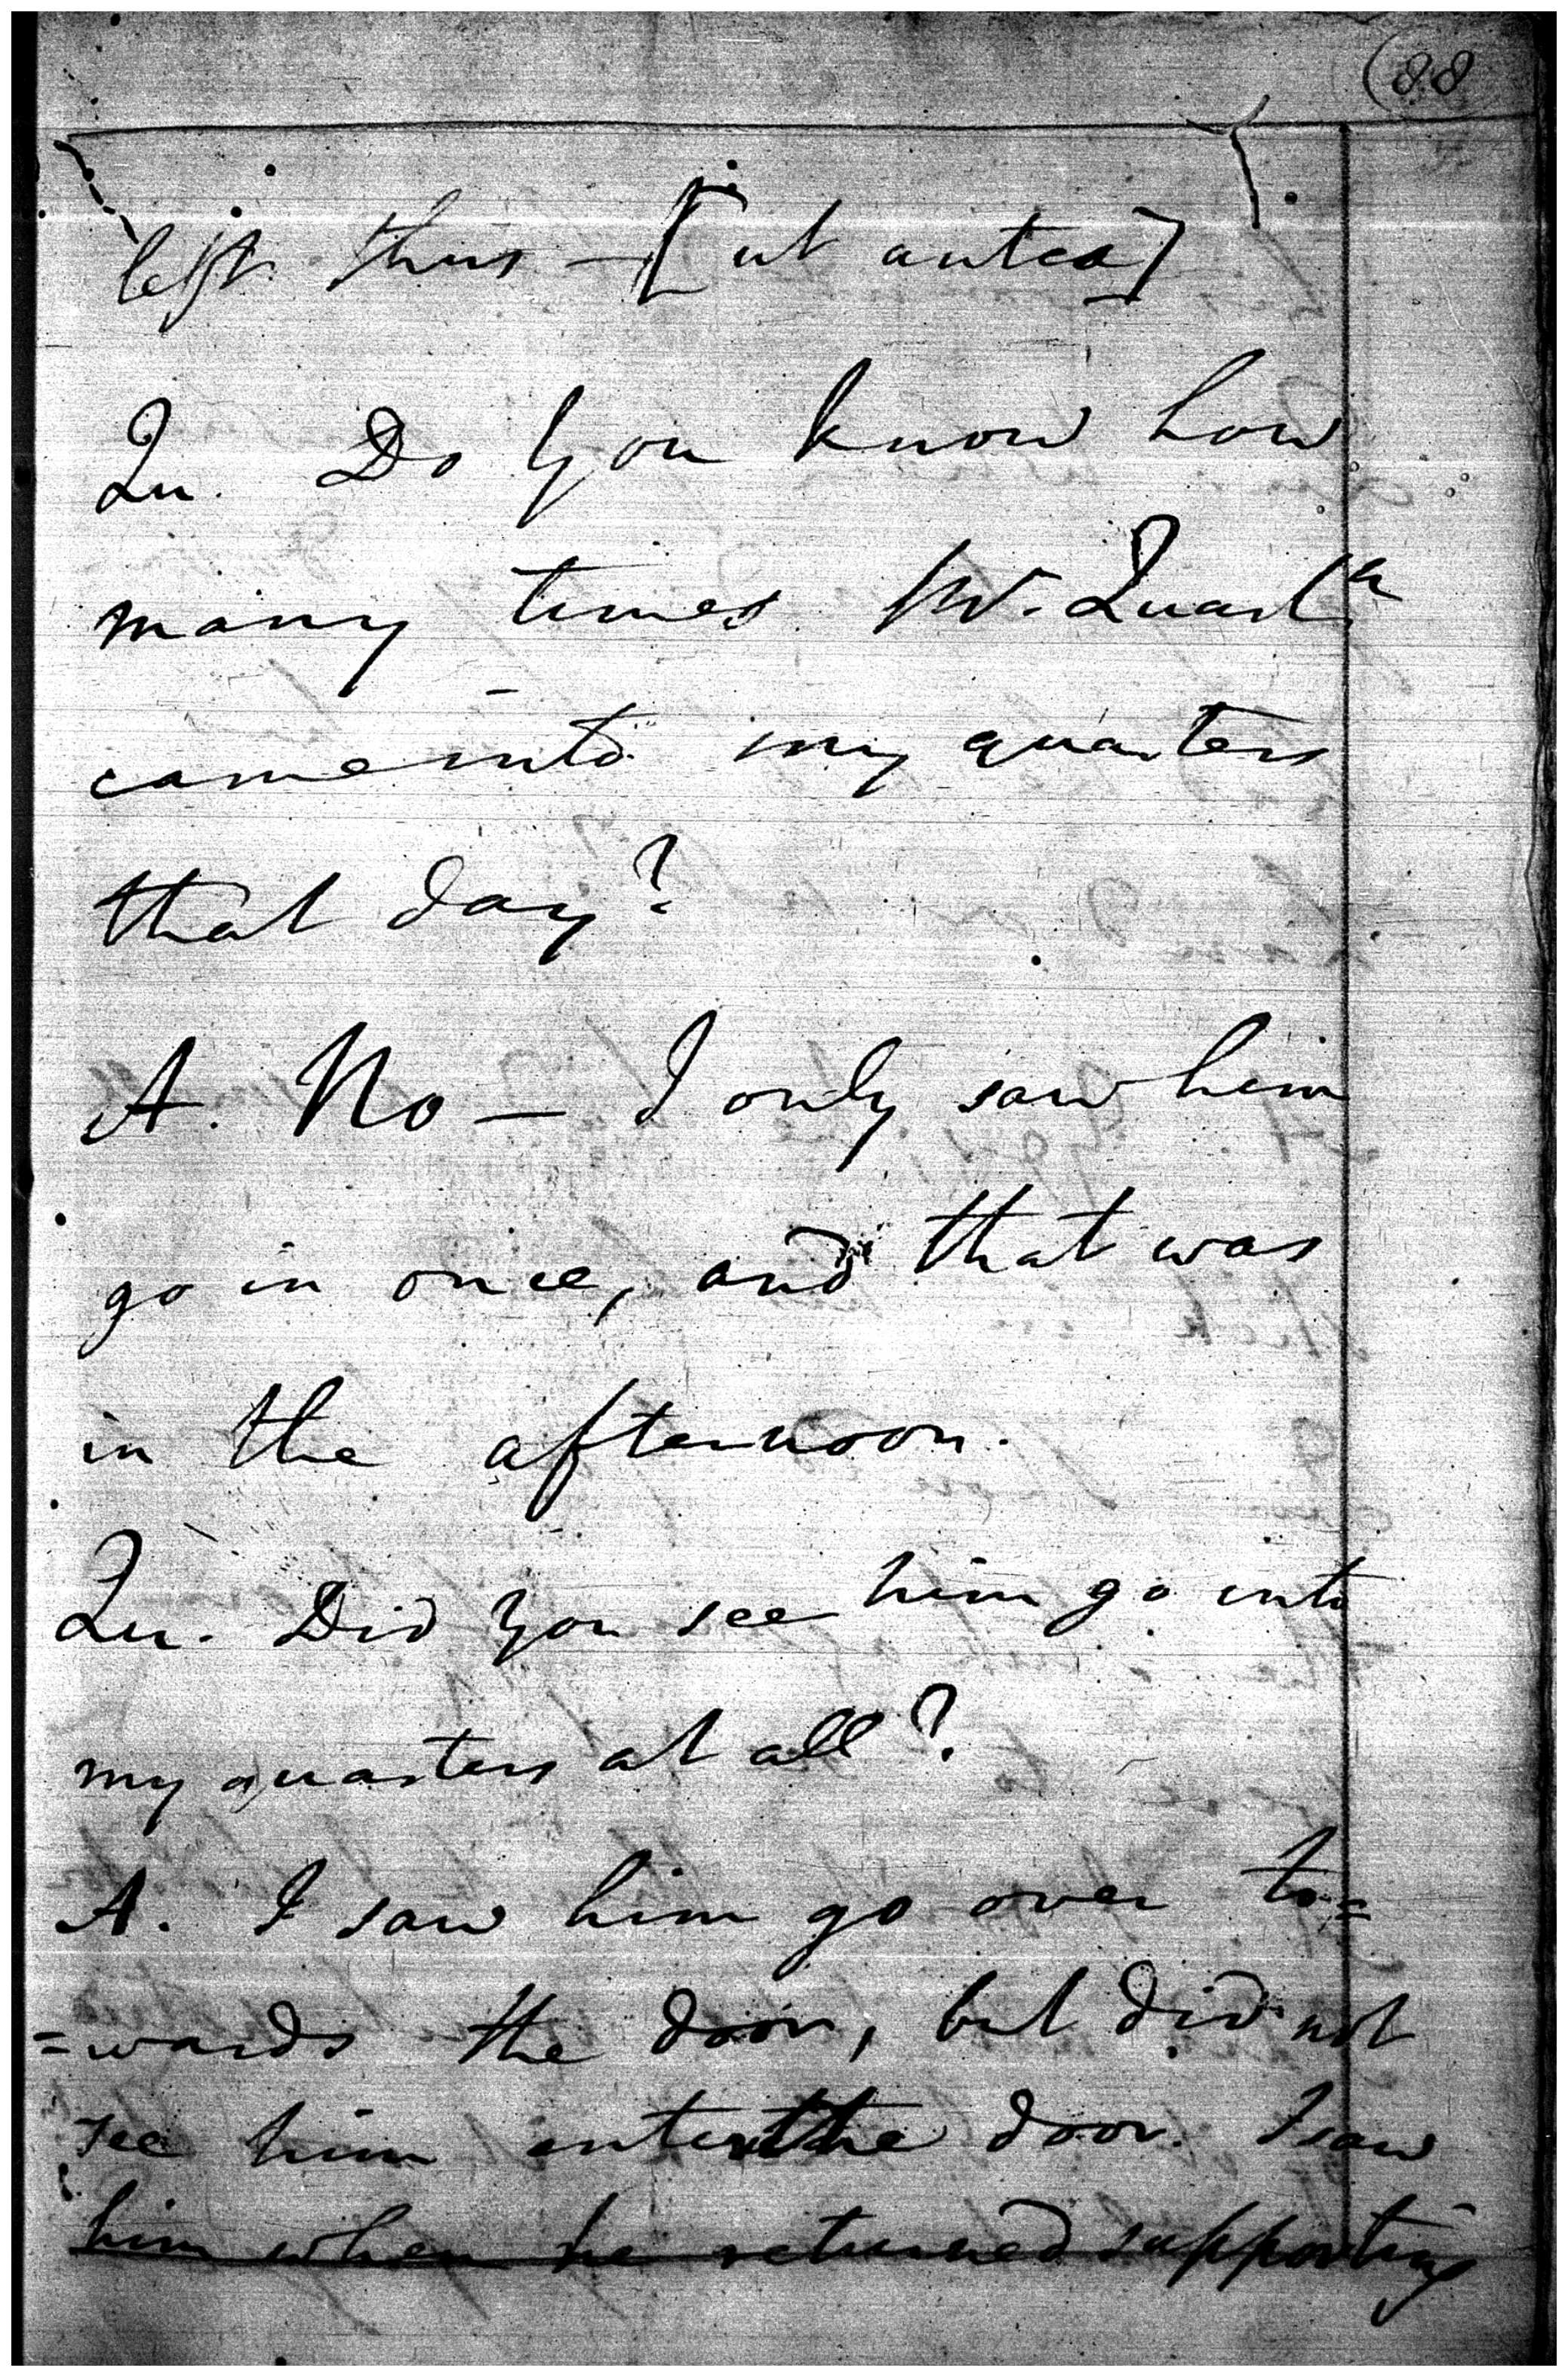 (88
left thus — [ut antea]
Qu. Do you know how
many times Mr. Quarl
came into my quarters
that day?
A. No — I only saw him
go in once, and that was
in the afternoon.
Qu. Did you see him go into
my quarters at all?
A. I saw him go over to=
=wards the door, but did not
see him enter the door. I saw
him when he returned supporting